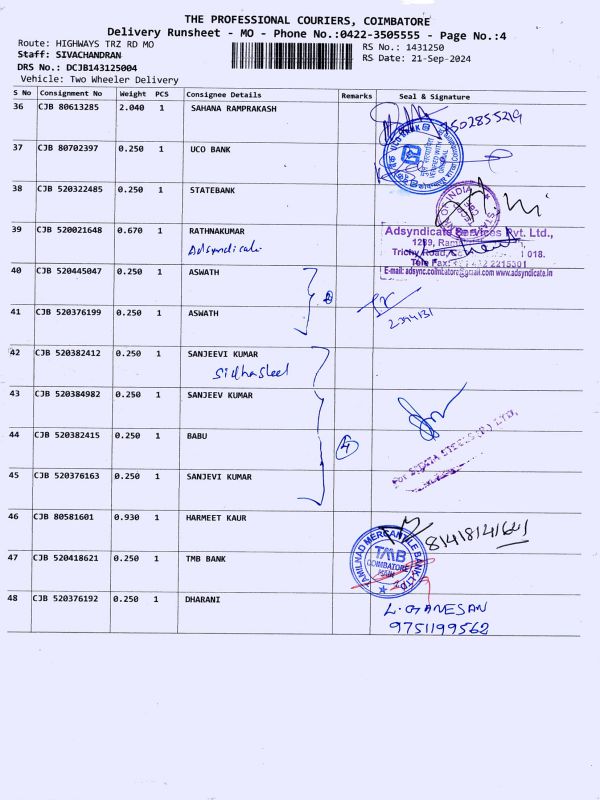 THE PROFESSIONAL COURIERS, COIMBATORE
Delivery Runsheet - MO - Phone No.:0422-3505555 - Page No.:4
Route: HIGHWAYS TRZ RD MO
RS No.: 1431250
Staff: SIVACHANDRAN
RS Date: 21-Sep-2024
DRS No.: DCJB143125004
Vehicle: Two Wheeler Delivery
S No Consignment No Weight PCS Consignee Details Remarks Seal & Signature
36 CJB 80613285 2.040 1 SAHANA RAMPRAKASH
37 CJB 80702397 0.250 1 UCO BANK
UCO BANK
38 CJB 520322485 0.250 1 STATEBANK
OF INDIA
39 CJB 520021648 0.670 1 RATHNAKUMAR
Adsyndicate
Adsyndicate Services Pvt. Ltd.,
Trichy Road,
018.
Tele Fax: 2215301
E-mail: adsync.coimbatore@gmail.com www.adsyndicate.in
40 CJB 520445047 0.250 1 ASWATH
41 CJB 520376199 0.250 1 ASWATH
42 CJB 520382412 0.250 1 SANJEEVI KUMAR
43 CJB 520384982 0.250 1 SANJEEV KUMAR
44 CJB 520382415 0.250 1 BABU
4
45 CJB 520376163 0.250 1 SANJEVI KUMAR
46 CJB 80581601 0.930 1 HARMEET KAUR
47 CJB 520418621 0.250 1 TMB BANK
TAMILNAD MERCANTILE BANK LTD.
TMB
COIMBATORE
MAIN
48 CJB 520376192 0.250 1 DHARANI
L. GANESAN
9751199562